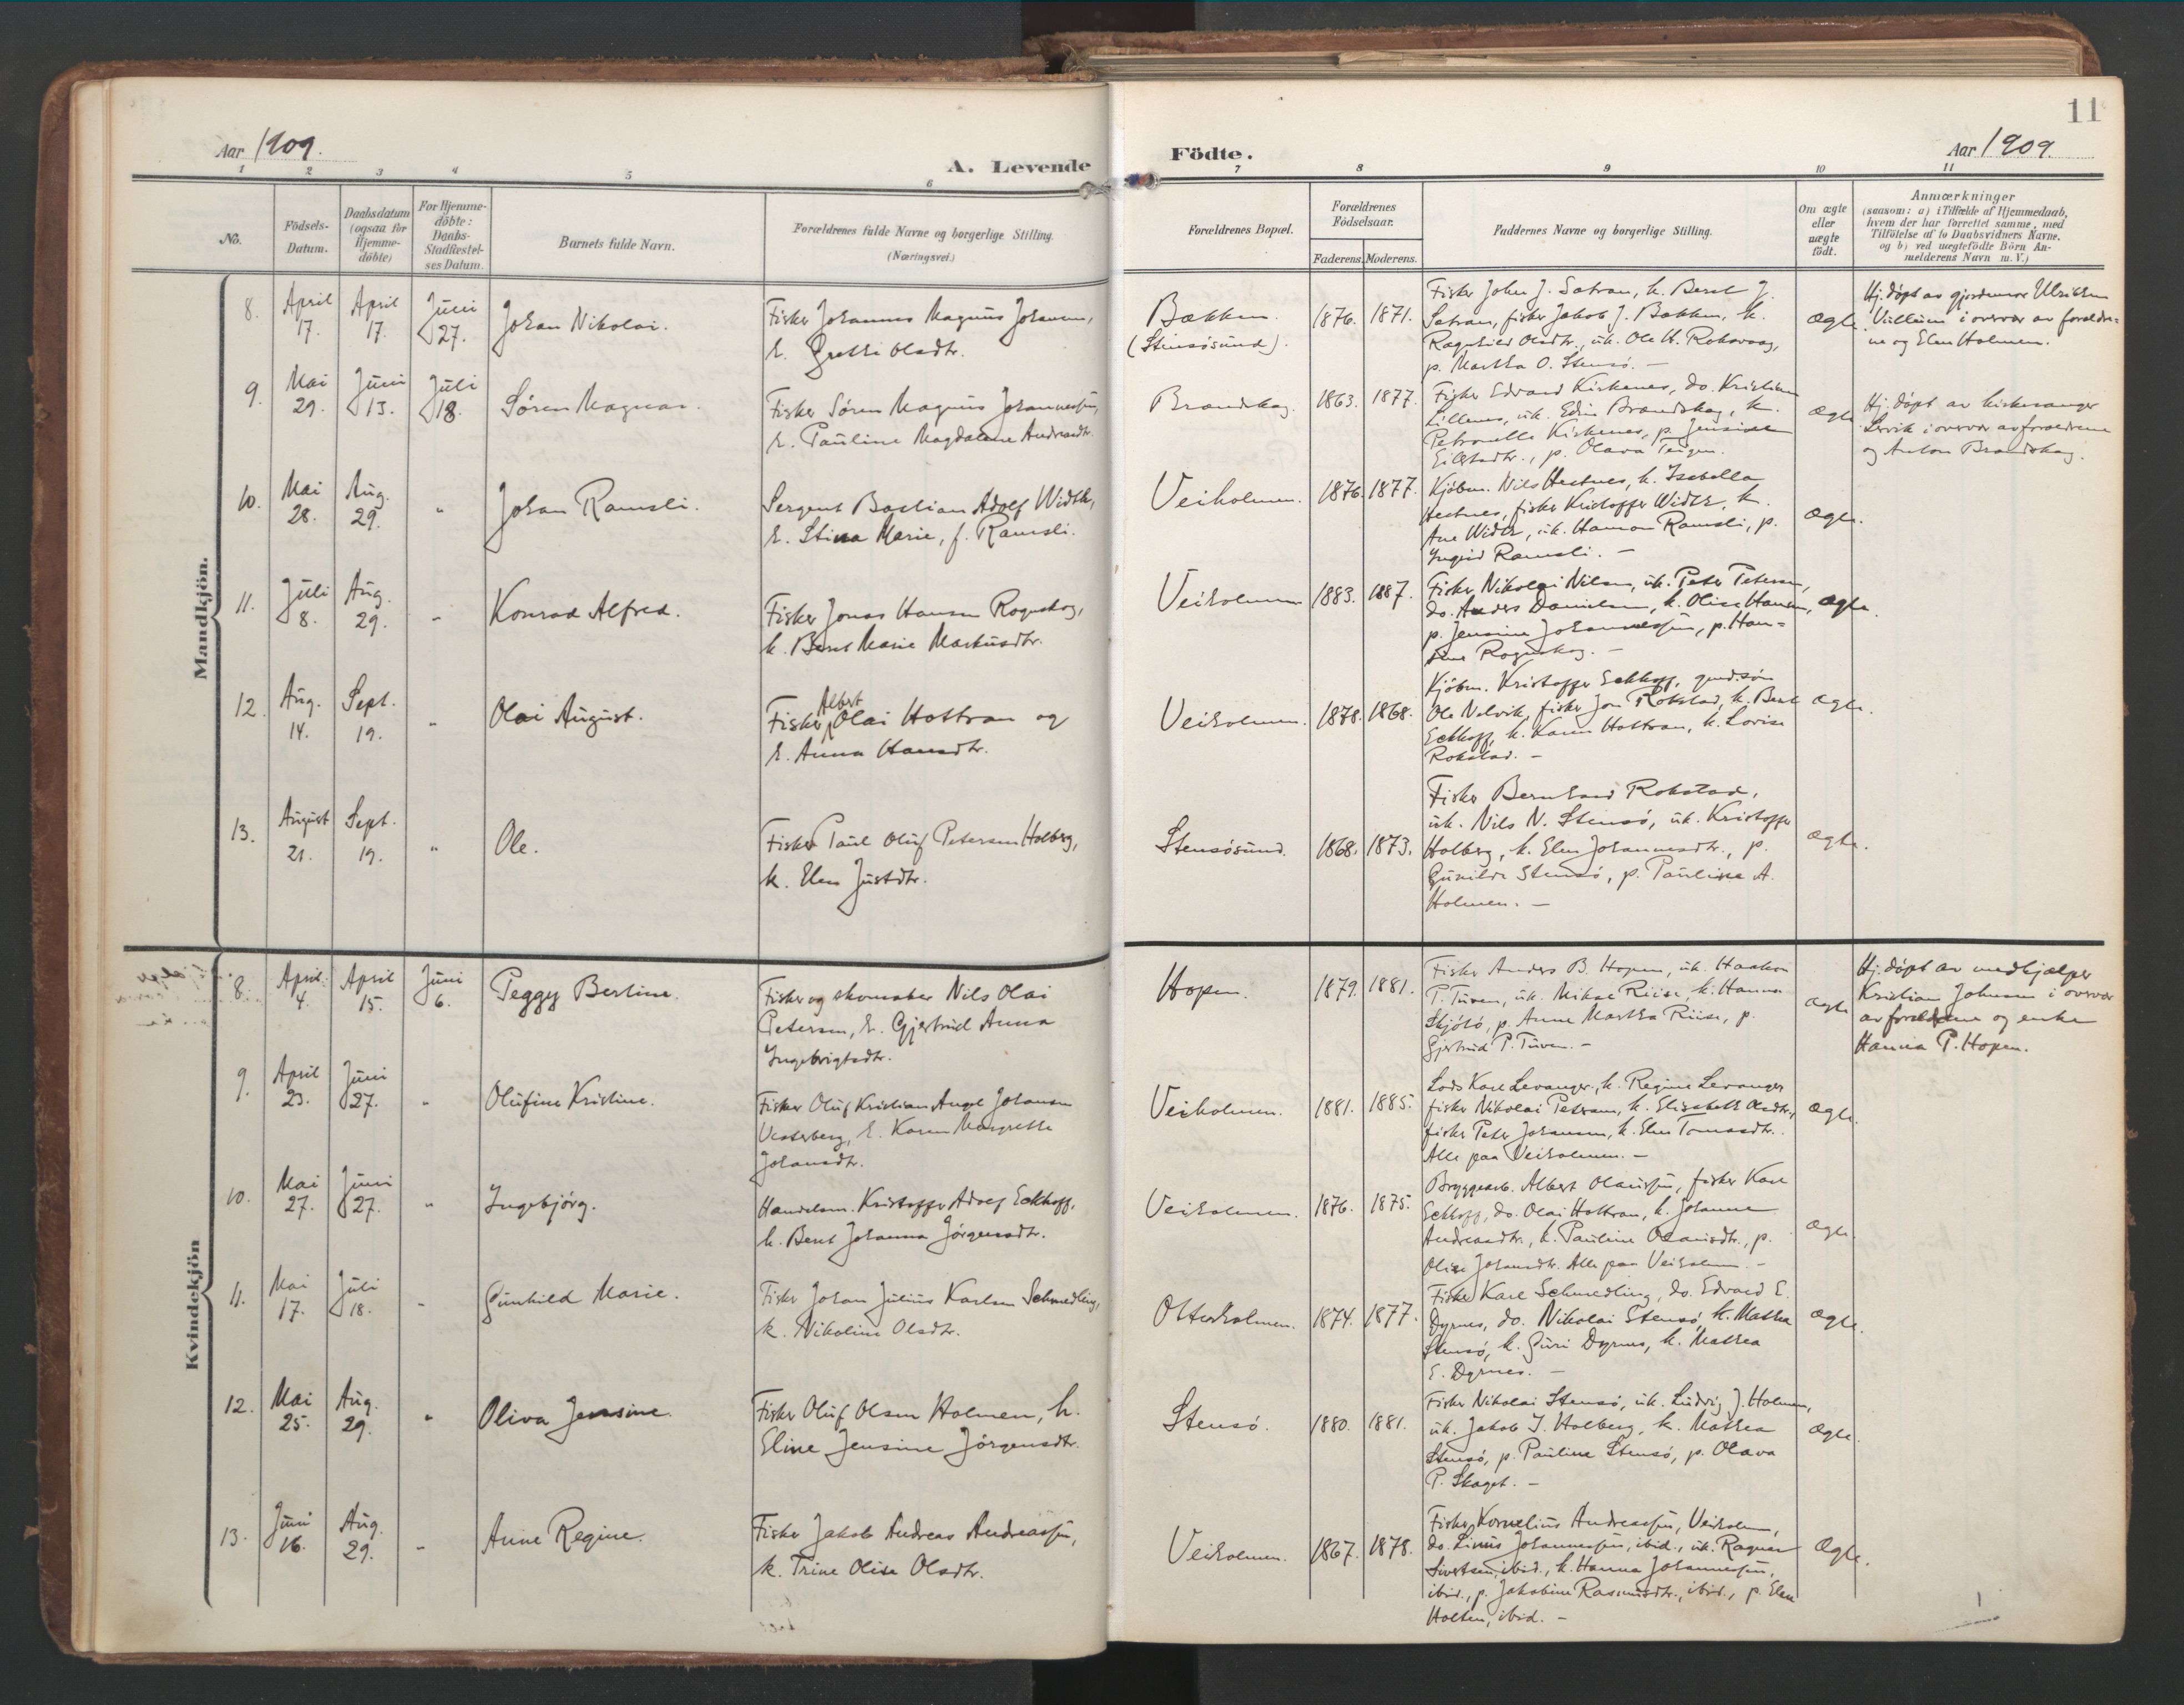 11
Aar 1909.
A. Levende
Födte.
Aar 1909.
1 2 3 4 5 6 7 8 9 10 11
No.
Födsels-
Datum.
Daabsdatum
(ogsaa for
Hjemme-
döbte)
For Hjemme-
döbte:
Daabs-
Stadfæstel-
ses Datum.
Barnets fulde Navn.
Forældrenes fulde Navne og borgerlige Stilling.
(Næringsvei.)
Forældrenes Bopæl.
Forældrenes
Födselsaar.
Faderens. Moderens.
Faddernes Navne og borgerlige Stilling.
Om ægte
eller
uægte
født.
Anmærkninger
(saasom: a) i Tilfælde af Hjemmedaab,
hvem der har forrettet samme, med
Tilföielse af to Daabsvidners Navne,
og b) ved uægtefödte Börn An-
melderens Navn m. V.)
Mandkjön.
8. April 17. April 17. Juni 27. Johan Nikolai.
Fisker Johannes Magnus Johansen,
h. Grethe Olsdtr.
Bækken.
(Stensösund).
1876. 1871.
Fisker John J. Sætran, h. Beret J.
Sætran, fisker Jakob J. Bækken, h.
Ragnhild Olsdtr., uk. Ole H. Roksvaag,
p. Martha O. Stensö. —
ægte.
Hj. döpt av gjordemor Ulrikken
Villum i overvær av forældre-
ne og Elen Holmen.
9. Mai 29. Juni 13. Juli 18. Sören Magnar.
Fisker Sören Magnus Johannessen,
h. Pauline Magdalene Andreasdtr.
Brandskag.
1863. 1877.
Fisker Edvard Kirkenes, do. Kristian
Lillenes, uk. Edin Brandskag, h.
Petronelle Kirkenes, p. Jensine
Eilertsdtr., p. Olava Teigen.
ægte
Hj. döpt av kirkesanger
Lervik i overvær av forældrene
og Anton Brandskag.
10. Mai 28. Aug. 29. " Johan Ramsli.
Sergent Bastian Adolf Width,
h. Stina Marie, f. Ramsli.
Veiholmen. 1876. 1877.
Kjöbm. Nils Hestnes, h. Isabella
Hestnes, fisker Kristoffer Width, h.
Ane Width, uk. Hamon Ramsli, p.
Ingrid Ramsli. —
ægte.
11. Juli 8. Aug. 29. " Konrad Alfred.
Fisker Jonas Hansen Rognskog,
h. Beret Marie Markusdtr.
Veiholmen 1883. 1887.
Fisker Nikolai Nilsen, uk. Peter Petersen,
do. Anders Danielsen, h. Olise Hansen,
p. Jensine Johannessen, p. Han-
sine Rognskog. —
ægte.
12. Aug. 14. Sept. 19. " Olai August.
Albert
Fisker Olai Hottran og
h. Anna Hansdtr.
Veiholmen. 1878. 1868.
Kjöbm. Kristoffer Eckhoff, gmd.sön
Ole Nelvik, fisker Jon Rokstad, h. Beret
Eckhoff, h. Karen Hottran, h. Lovise
Rokstad. —
ægte.
13. August 21. Sept. 19. " Ole.
Fisker Paul Oluf Petersen Holberg,
h. Elen Justdtr.
Stensösund. 1868. 1873.
Fisker Bernhard Rokstad,
uk. Nils N. Stensö, uk. Kristoffer
Holberg, h. Elen Johannesdtr., p.
Gunilde Stensö, p. Pauline A.
Holmen. —
ægte.
Kvindekjön
8. April 4. April 15. Juni 6. Peggy Bertine.
Fisker og skomaker Nils Olai
Petersen, h. Gjertrud Anna
Ingebrigtsdtr.
Hopen. 1879. 1881.
Fisker Anders B. Hopen, uk. Haakon
P. Tuven, uk. Mikal Riise, h. Hanna
Skjölö, p. Anne Martha Riise, p.
Gjertrud P. Tuven. —
ægte
Hj. döpt av medhjælper
Kristian Johnsen i overvær
av forældrene og enke
Hanna P. Hopen.
9. April 23. Juni 27. " Olufine Kristine.
Fisker Oluf Kristian Angel Johansen
Vesterberg, h. Karen Margrethe
Johansdtr.
Veiholmen. 1881. 1885.
Lods Karl Levanger, h. Regine Levanger
fisker Nikolai Petersen, h. Elisabeth Olsdtr.,
fisker Peter Johansen, h. Elen Tomasdtr.
Alle paa Veiholmen. —
ægte.
10. Mai 27. Juni 27. " Ingebjörg.
Handelsm. Kristoffer Adolf Eckhoff,
h. Beret Johanna Jörgensdtr.
Veiholmen. 1876. 1875.
Bryggearb. Albert Olaissen, fisker Karl
Eckhoff, do. Olai Hottran, h. Johanna
Andreasdtr., h. Pauline Olaisdtr., p.
Olise Johansdtr. Alle paa Veiholmen. —
ægte.
11. Mai 17. Juli 18. " Gunhild Marie.
Fisker Johan Julius Karlsen Schmedling,
h. Nikoline Olsdtr.
Otterholmen. 1874. 1877.
Fisker Karl Schmedling, do. Edvard E.
Dyrnes, do. Nikolai Stensö, h. Mathea
Stensö, h. Guri Dyrnes, h. Mathea
E. Dyrnes. —
ægte.
12. Mai 25. Aug. 29. " Oliva Jensine.
Fisker Oluf Olsen Holmen, h.
Eline Jensine Jörgensdtr.
Stensö. 1880. 1881.
Fisker Nikolai Stensö, uk. Ludvig J. Holmen,
uk. Jakob J. Holberg, h. Mathea
Stensö, p. Pauline Stensö, p. Olava
P. Skaget. —
ægte.
13. Juni 16. Aug. 29. " Anne Regine.
Fisker Jakob Andreas Andreassen,
h. Trine Olise Olsdtr.
Veiholmen. 1867. 1878.
Fisker Kornelius Andreassen, Veiholmen,
do. Linus Johannessen, ibid., uk. Ragnar
Sivertsen, ibid., h. Hanna Johannessen,
ibid., p. Jakobine Rasmusdtr., ibid., p. Elen
Holten, ibid. —
ægte.